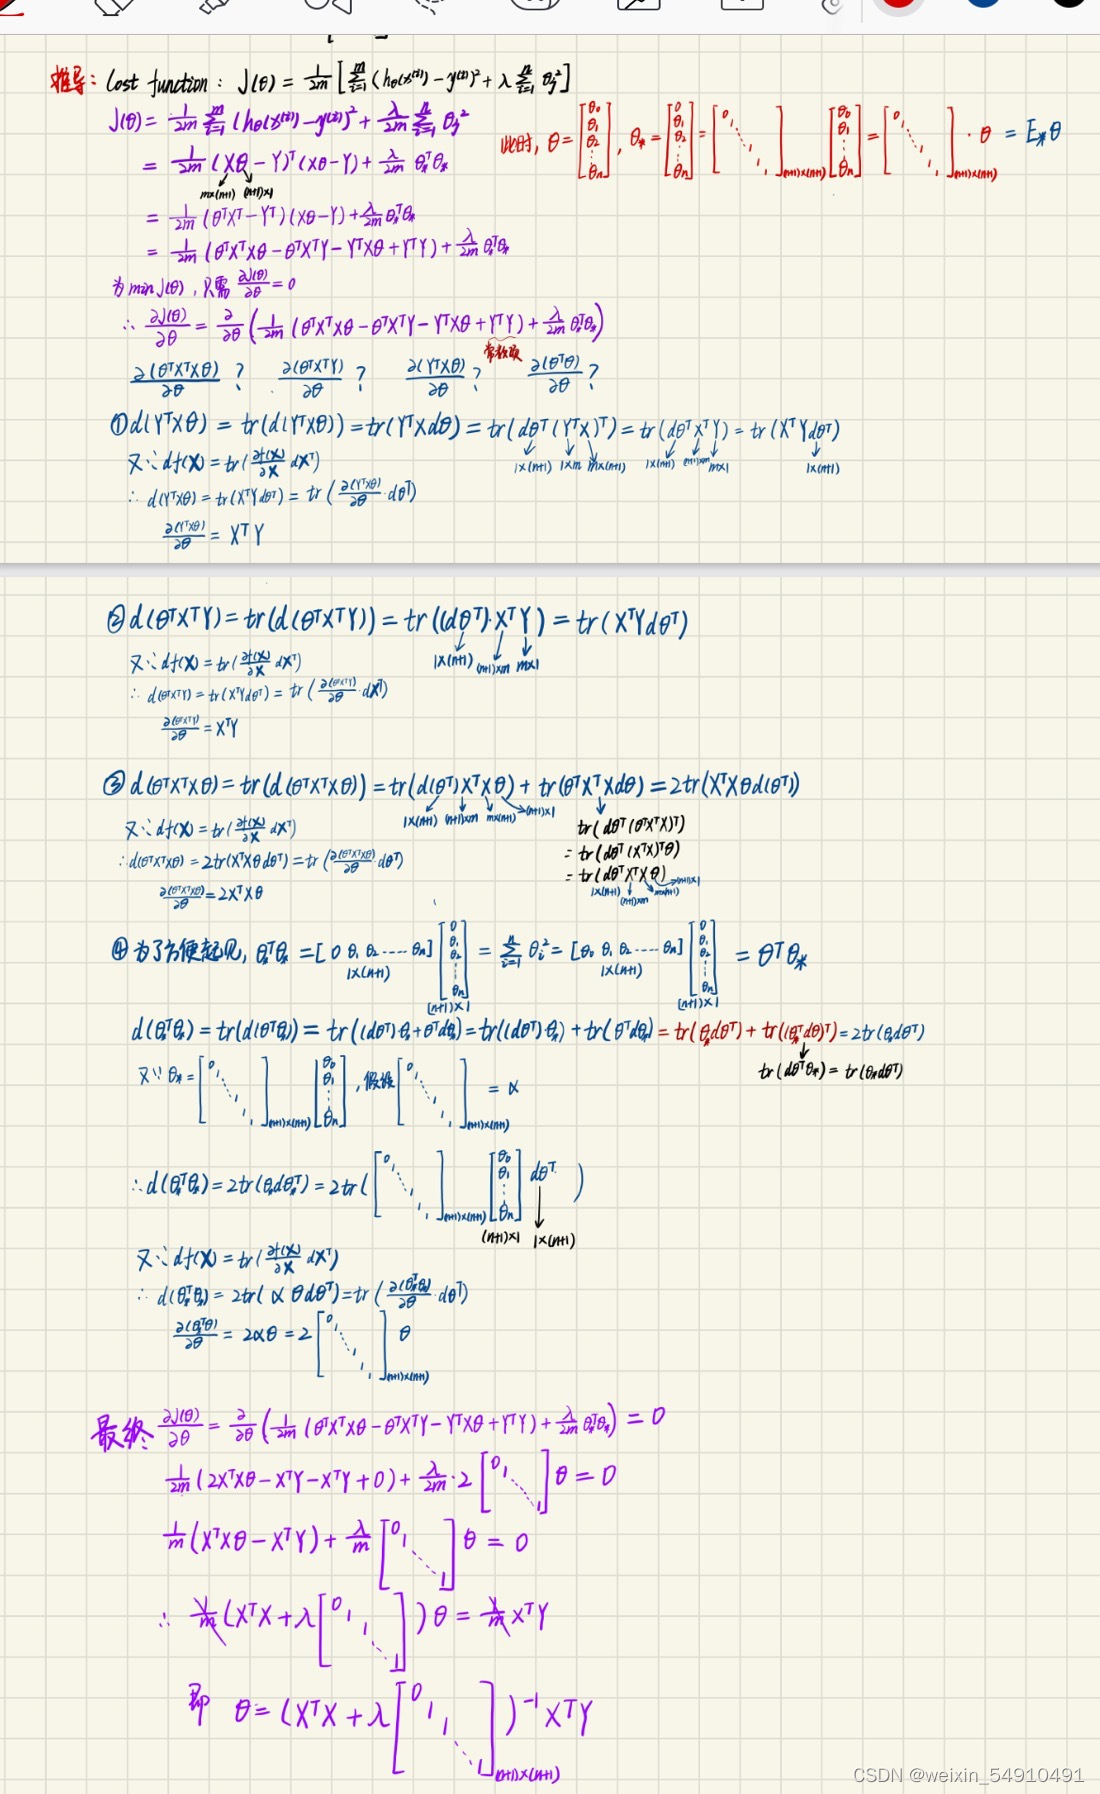 推导: Cost function: J(θ) = 1/2m [ Σ_{i=1}^{m} (hθ(x^(i)) - y^(i))² + λ Σ_{j=1}^{n} θj² ]
J(θ) = 1/2m Σ_{i=1}^{m} (hθ(x^(i)) - y^(i))² + λ/2m Σ_{j=1}^{n} θj²
此时, θ = [θ0 θ1 θ2 ⋮ θn], θ* = [0 θ1 θ2 ⋮ θn] = [0 1 ⋱ 1](n+1)×(n+1) [θ0 θ1 ⋮ θn] = [0 1 ⋱ 1](n+1)×(n+1) · θ = E*θ
= 1/2m (Xθ - Y)ᵀ(Xθ - Y) + λ/2m θ*ᵀθ*
m×(n+1) (n+1)×1
= 1/2m (θᵀXᵀ - Yᵀ)(Xθ - Y) + λ/2m θ*ᵀθ*
= 1/2m (θᵀXᵀXθ - θᵀXᵀY - YᵀXθ + YᵀY) + λ/2m θ*ᵀθ*
为min J(θ), 只需 ∂J(θ)/∂θ = 0
∴ ∂J(θ)/∂θ = ∂/∂θ ( 1/2m (θᵀXᵀXθ - θᵀXᵀY - YᵀXθ + YᵀY) + λ/2m θ*ᵀθ* )
常数项
∂(θᵀXᵀXθ)/∂θ ? ∂(θᵀXᵀY)/∂θ ? ∂(YᵀXθ)/∂θ ? ∂(θᵀθ)/∂θ ?
① d(YᵀXθ) = tr(d(YᵀXθ)) = tr(YᵀXdθ) = tr(dθᵀ(YᵀX)ᵀ) = tr(dθᵀXᵀY) = tr(XᵀYdθᵀ)
1×(n+1) 1×m m×(n+1) 1×(n+1) (n+1)×m m×1 1×(n+1)
又∵ df(X) = tr(∂f(X)/∂X dXᵀ)
∴ d(YᵀXθ) = tr(XᵀYdθᵀ) = tr(∂(YᵀXθ)/∂θ · dθᵀ)
∂(YᵀXθ)/∂θ = XᵀY
② d(θᵀXᵀY) = tr(d(θᵀXᵀY)) = tr((dθᵀ)·XᵀY) = tr(XᵀYdθᵀ)
1×(n+1) (n+1)×m m×1
又∵ df(X) = tr(∂f(X)/∂X dXᵀ)
∴ d(θᵀXᵀY) = tr(XᵀYdθᵀ) = tr(∂(θᵀXᵀY)/∂θ · dXᵀ)
∂(θᵀXᵀY)/∂θ = XᵀY
③ d(θᵀXᵀXθ) = tr(d(θᵀXᵀXθ)) = tr(d(θᵀ)XᵀXθ) + tr(θᵀXᵀXdθ) = 2tr(XᵀXθd(θᵀ))
1×(n+1) (n+1)×m m×(n+1) (n+1)×1
又∵ df(X) = tr(∂f(X)/∂X dXᵀ)
tr(dθᵀ(θᵀXᵀX)ᵀ)
∴ d(θᵀXᵀXθ) = 2tr(XᵀXθdθᵀ) = tr(∂(θᵀXᵀXθ)/∂θ · dθᵀ)
= tr(dθᵀ(XᵀX)ᵀθ)
∂(θᵀXᵀXθ)/∂θ = 2XᵀXθ
= tr(dθᵀXᵀXθ)
1×(n+1) (n+1)×m m×(n+1) (n+1)×1
④ 为了方便起见, θ*ᵀθ* = [0 θ1 θ2 ---- θn] [0 θ1 θ2 ⋮ θn] = Σ_{i=1}^{n} θi² = [θ0 θ1 θ2 ---- θn] [0 θ1 θ2 ⋮ θn] = θᵀθ*
1×(n+1) (n+1)×1 1×(n+1) (n+1)×1
d(θ*ᵀθ*) = tr(d(θᵀθ*)) = tr((dθᵀ)·θ* + θᵀdθ*) = tr((dθᵀ)·θ*) + tr(θᵀdθ*) = tr(θ*dθᵀ) + tr((θ*ᵀdθ)ᵀ) = 2tr(θ*dθᵀ)
tr(dθᵀθ*) = tr(θ*dθᵀ)
又∵ θ* = [0 1 ⋱ 1](n+1)×(n+1) [θ0 θ1 ⋮ θn], 假设 [0 1 ⋱ 1](n+1)×(n+1) = α
∴ d(θ*ᵀθ*) = 2tr(θ*dθ*ᵀ) = 2tr( [0 1 ⋱ 1](n+1)×(n+1) [θ0 θ1 ⋮ θn] dθᵀ )
(n+1)×1 1×(n+1)
又∵ df(X) = tr(∂f(X)/∂X dXᵀ)
∴ d(θ*ᵀθ*) = 2tr(αθdθᵀ) = tr(∂(θ*ᵀθ*)/∂θ · dθᵀ)
∂(θ*ᵀθ)/∂θ = 2αθ = 2 [0 1 ⋱ 1](n+1)×(n+1) θ
最终 ∂J(θ)/∂θ = ∂/∂θ ( 1/2m (θᵀXᵀXθ - θᵀXᵀY - YᵀXθ + YᵀY) + λ/2m θ*ᵀθ* ) = 0
1/2m (2XᵀXθ - XᵀY - XᵀY + 0) + λ/2m · 2 [0 1 ⋱ 1] θ = 0
1/m (XᵀXθ - XᵀY) + λ/m [0 1 ⋱ 1] θ = 0
∴ 1/m (XᵀX + λ [0 1 1 ⋱ 1] ) θ = 1/m XᵀY
即 θ = (XᵀX + λ [0 1 1 ⋱ 1](n+1)×(n+1) )⁻¹ XᵀY
CSDN @weixin_54910491